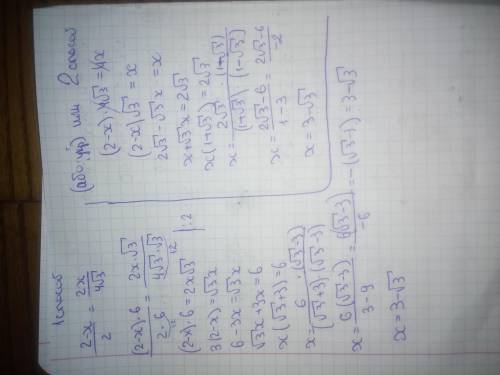 1 способ
\frac{2-x}{2} = \frac{2x}{4\sqrt{3}}
\frac{(2-x)\cdot 6}{2\cdot 6} = \frac{2x\cdot\sqrt{3}}{4\sqrt{3}\cdot\sqrt{3}}
12 12
(2-x)\cdot 6 = 2x\sqrt{3} |:2
3(2-x) = \sqrt{3}x
6-3x = \sqrt{3}x
\sqrt{3}x+3x = 6
x(\sqrt{3}+3) = 6
x = \frac{6 \cdot(\sqrt{3}-3)}{(\sqrt{3}+3)\cdot(\sqrt{3}-3)}
x = \frac{6(\sqrt{3}-3)}{3-9} = \frac{6(\sqrt{3}-3)}{-6} = -(\sqrt{3}-3) = 3-\sqrt{3}
x = 3-\sqrt{3}
или 2 способ
(2-x)\cdot 4\sqrt{3} = 4x
(2-x)\sqrt{3} = x
2\sqrt{3}-\sqrt{3}x = x
x+\sqrt{3}x = 2\sqrt{3}
x(1+\sqrt{3}) = 2\sqrt{3}
x = \frac{2\sqrt{3}\cdot(1-\sqrt{3})}{(1+\sqrt{3})\cdot(1-\sqrt{3})}
x = \frac{2\sqrt{3}-6}{1-3} = \frac{2\sqrt{3}-6}{-2}
x = 3-\sqrt{3}